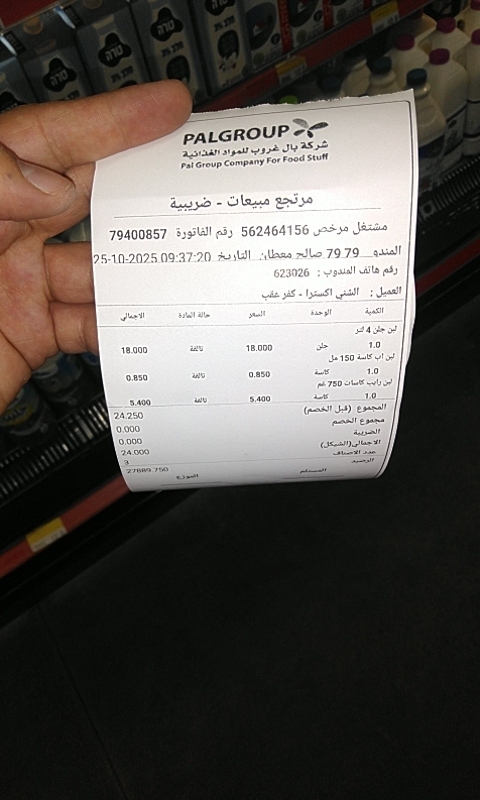 PALGROUP
شركة بال غروب للمواد الغذائية
Pal Group Company For Food Stuff
مرتجع مبيعات - ضريبية
مشتغل مرخص 562464156 رقم الفاتورة 79400857
المندو 79 79 صالح معطان التاريخ 25-10-2025 09:37:20
رقم هاتف المندوب : 623026
العميل : الشني اكسترا - كفر عقب
الكمية الوحدة السعر حالة المادة الاجمالي
لبن جلن 4 لتر
1.0 جلن 18.000 تالفة 18.000
لبن اب كاسة 150 مل
1.0 كاسة 0.850 تالفة 0.850
لبن رايب كاسات 750 غم
1.0 كاسة 5.400 تالفة 5.400
المجموع (قبل الخصم) 24.250
مجموع الخصم 0.000
الضريبة 0.000
الاجمالي(الشيكل) 24.000
عدد الاصناف 3
الرصيد 27889.750
المستلم الموزع